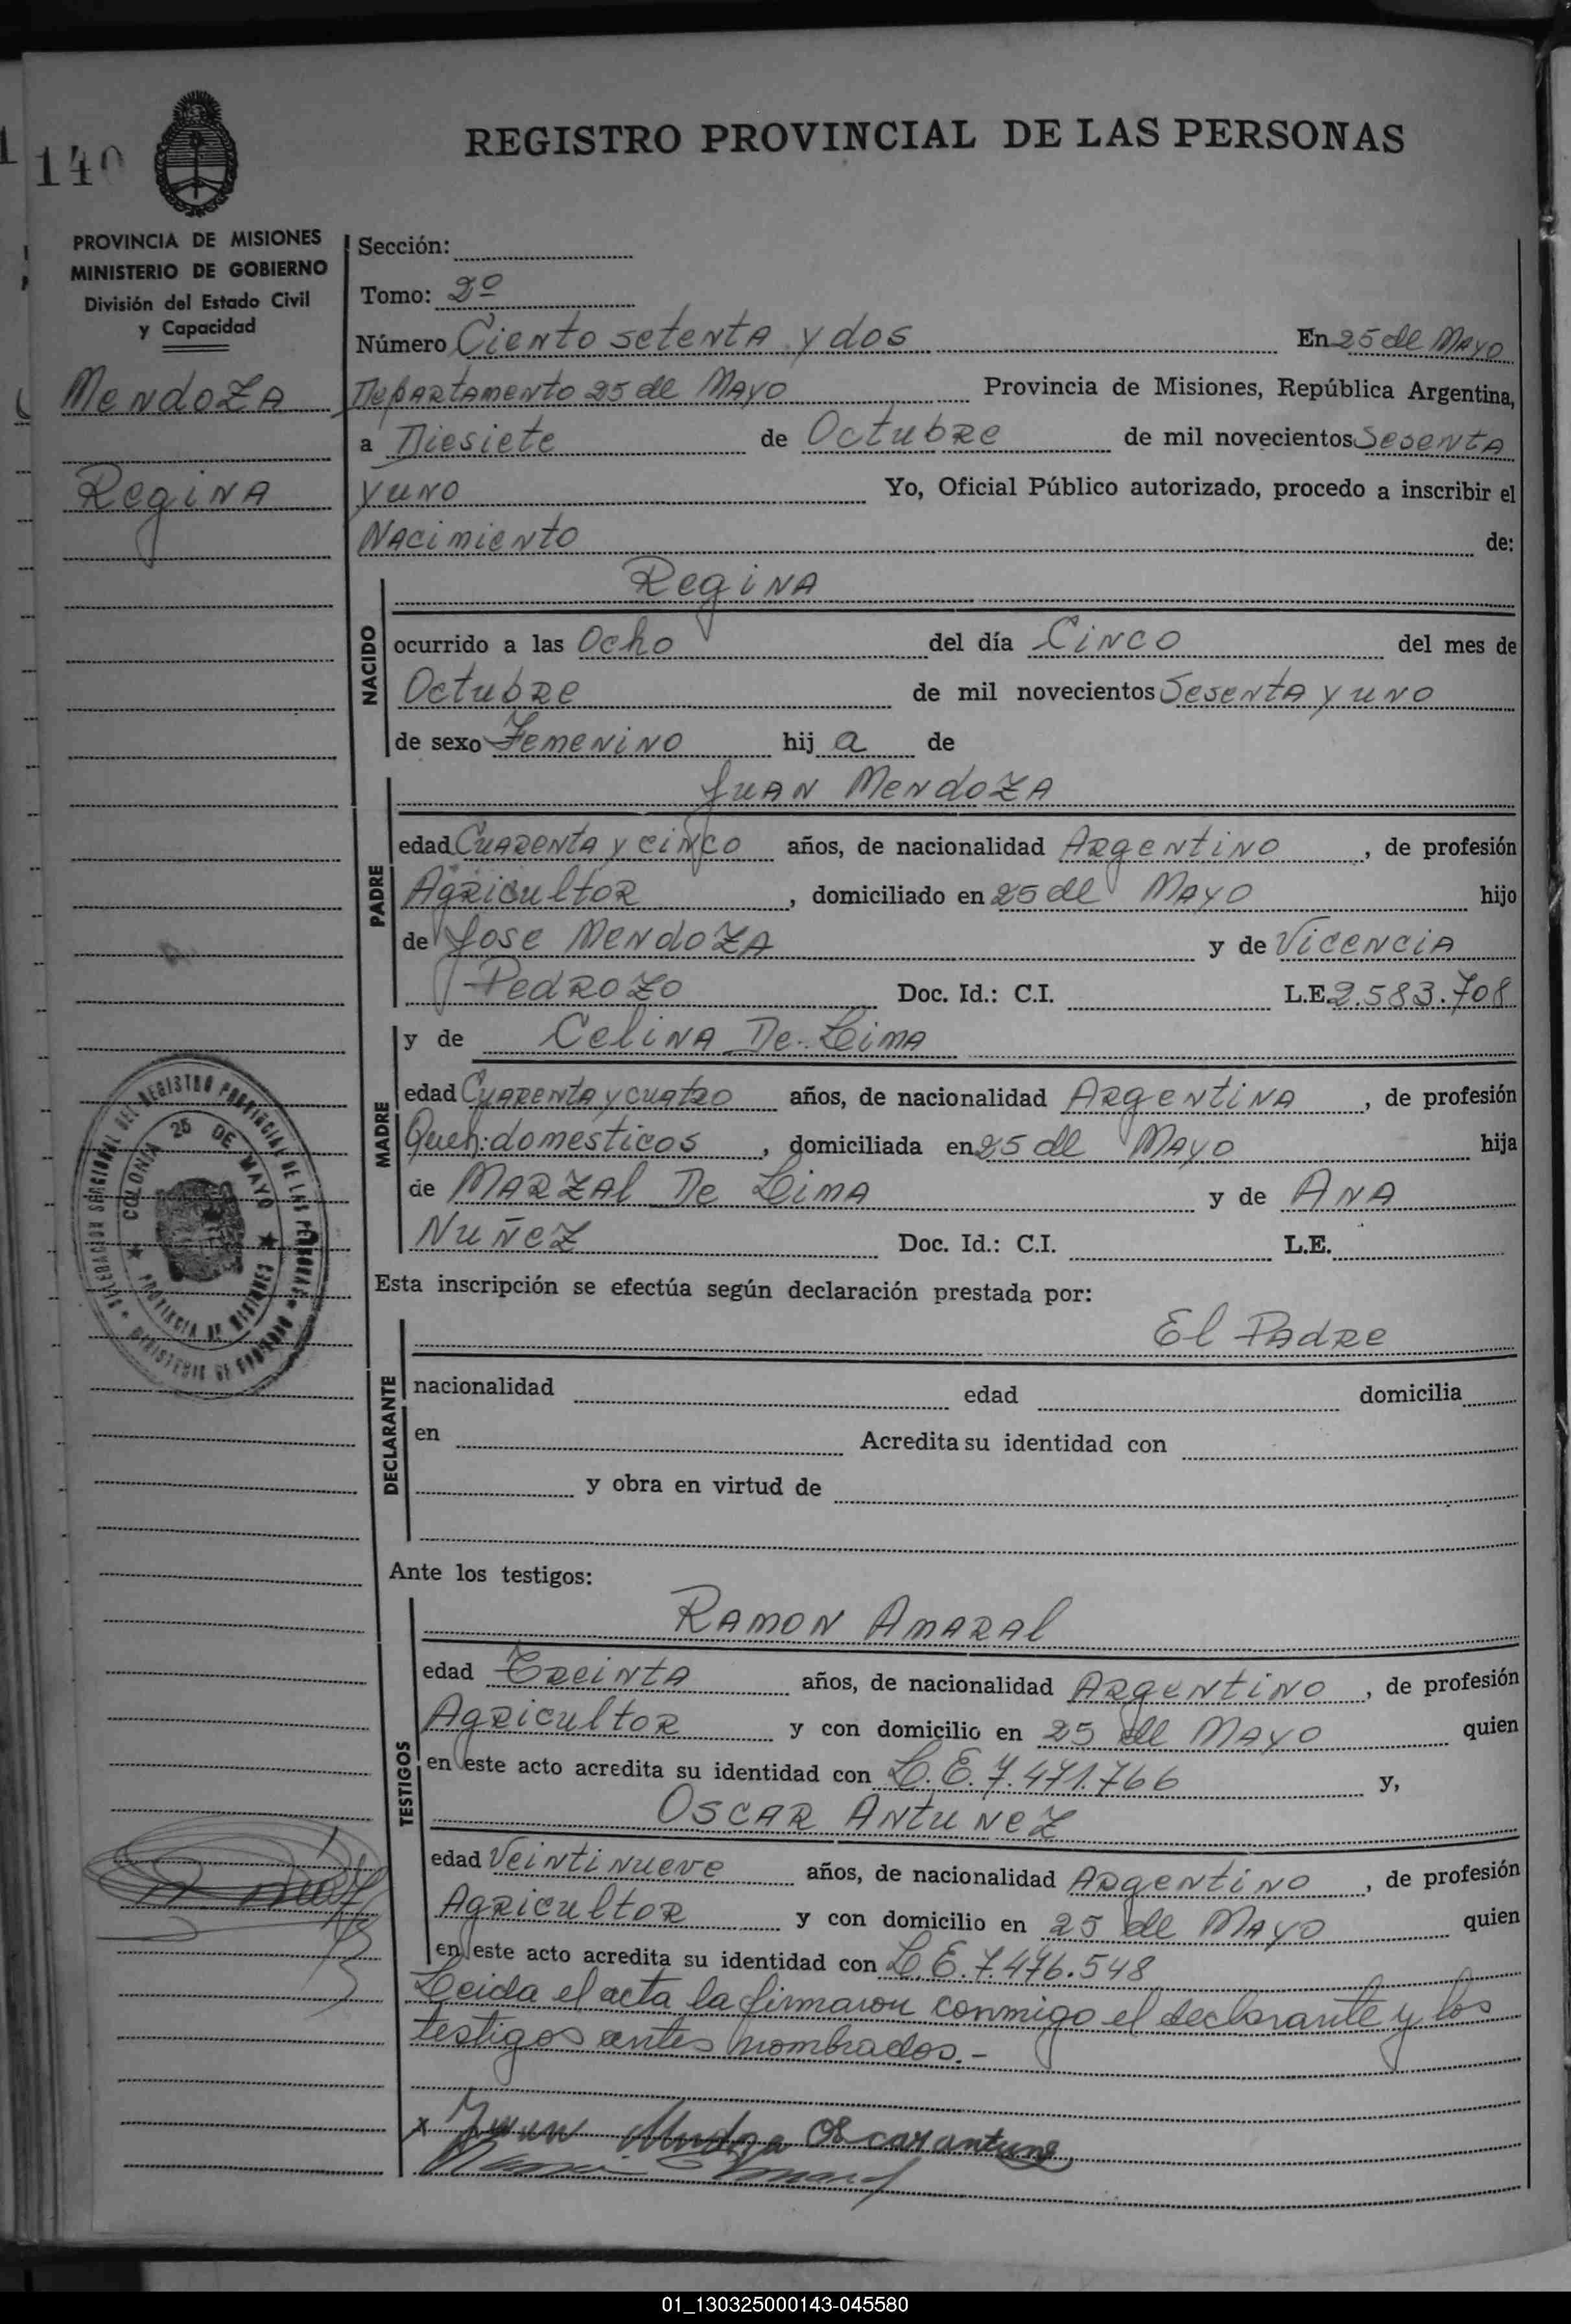 140
REGISTRO PROVINCIAL DE LAS PERSONAS
PROVINCIA DE MISIONES
MINISTERIO DE GOBIERNO
División del Estado Civil
y Capacidad
Mendoza
Regina
Sección:
Tomo: 2º
Número Ciento setenta y dos En 25 de Mayo
Departamento 25 de Mayo Provincia de Misiones, República Argentina,
a Diesiete de Octubre de mil novecientos Sesenta
y uno Yo, Oficial Público autorizado, procedo a inscribir el
Nacimiento de:
NACIDO
Regina
ocurrido a las Ocho del día Cinco del mes de
Octubre de mil novecientos Sesenta y uno
de sexo Femenino hij a de
PADRE
Juan Mendoza
edad Cuarenta y cinco años, de nacionalidad Argentino, de profesión
Agricultor, domiciliado en 25 de Mayo hijo
de Jose Mendoza y de Vicencia
Pedrozo Doc. Id.: C.I. L.E. 2.583.708
MADRE
y de Celina De Lima
edad Cuarenta y cuatro años, de nacionalidad Argentina, de profesión
Queh: domesticos, domiciliada en 25 de Mayo hija
de Marzal De Lima y de Ana
Nuñez Doc. Id.: C.I. L.E.
Esta inscripción se efectúa según declaración prestada por:
DECLARANTE
El Padre
nacionalidad edad domicilia
en Acredita su identidad con
y obra en virtud de
Ante los testigos:
TESTIGOS
Ramon Amaral
edad Treinta años, de nacionalidad Argentino, de profesión
Agricultor y con domicilio en 25 de Mayo quien
en este acto acredita su identidad con L.E. 7.471.766 y,
Oscar Antunez
edad Veintinueve años, de nacionalidad Argentino, de profesión
Agricultor y con domicilio en 25 de Mayo quien
en este acto acredita su identidad con L.E. 7.476.548
Leida el acta la firmaron conmigo el declarante y los
testigos antes nombrados.-
x Juan Mendoza Oscar antune
DELEGACION SECCIONAL DEL REGISTRO PROVINCIAL DE LAS PERSONAS
MINISTERIO DE GOBIERNO
COLONIA 25 DE MAYO
PROVINCIA DE MISIONES
01_130325000143-045580